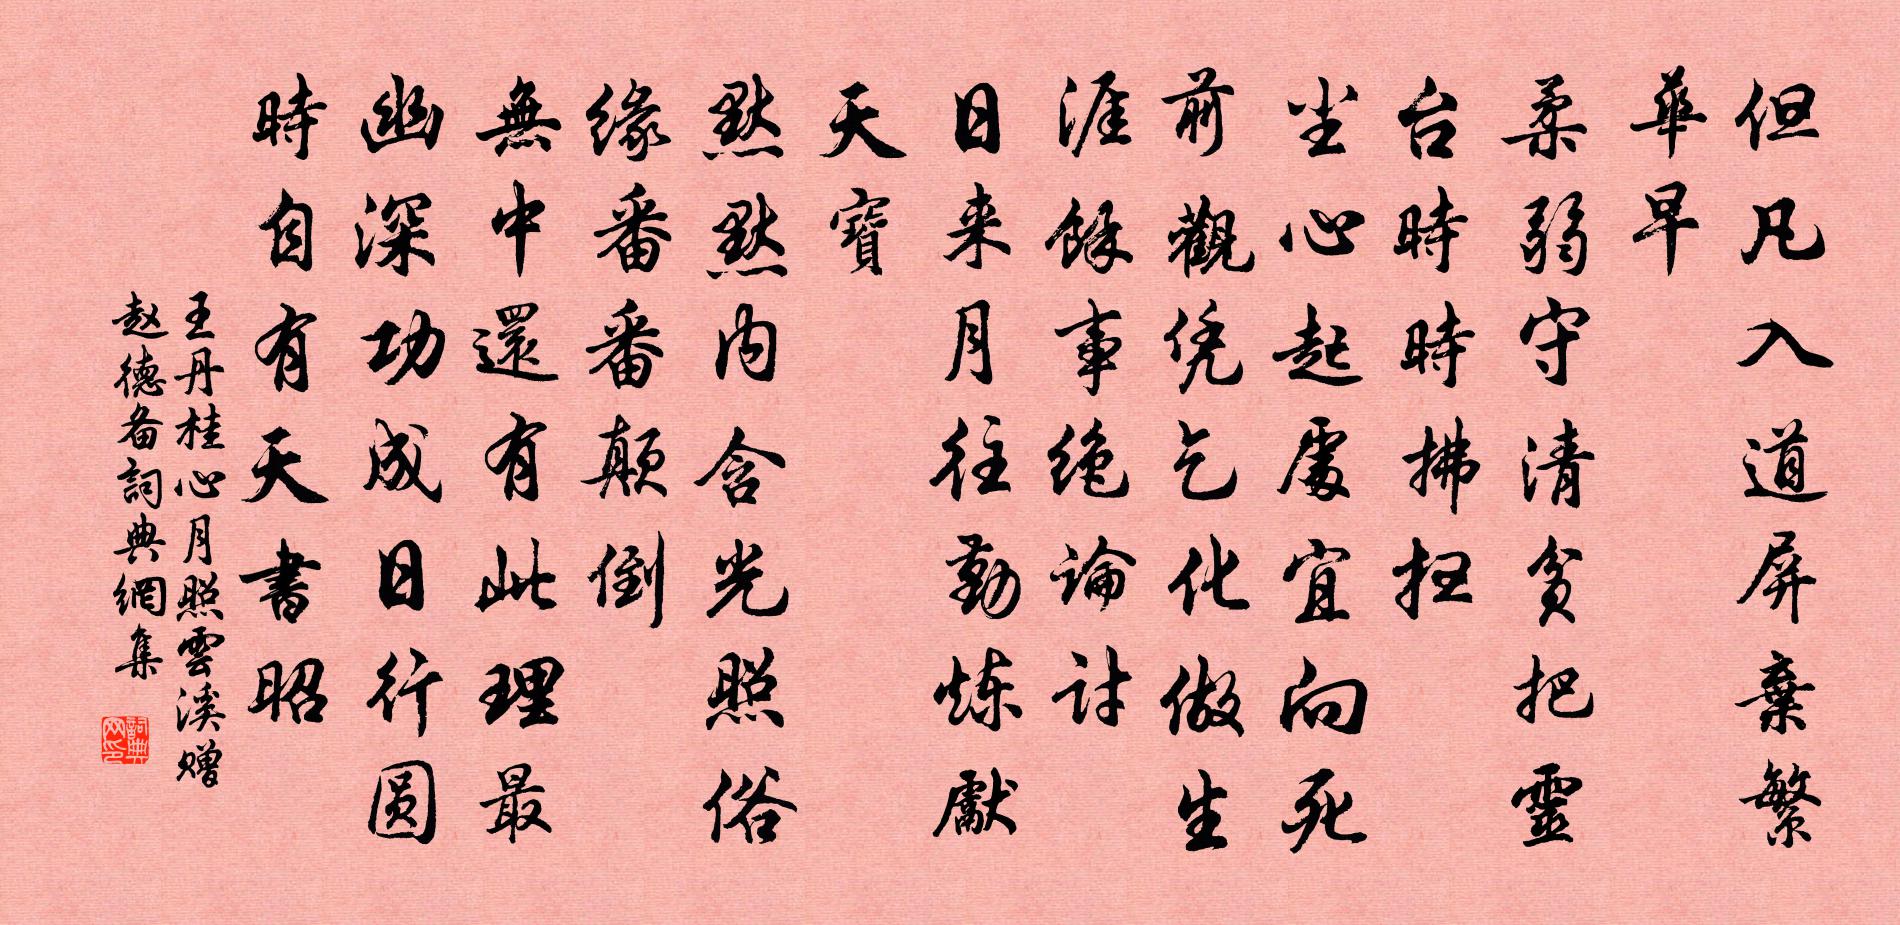 但凡入道屏棄繁
華早
柔弱守清貧把靈
台時時拂扫
尘心起處宜向死
前觀凭乞化做生
涯餘事绝論討
日来月往勤炼獻
天寶
默默内含光照俗
缘番番颠倒
無中還有此理最
幽深功成日行圆
時自有天書昭
王丹桂心月照雲溪赠
赵德备詞典網集
詞典网印